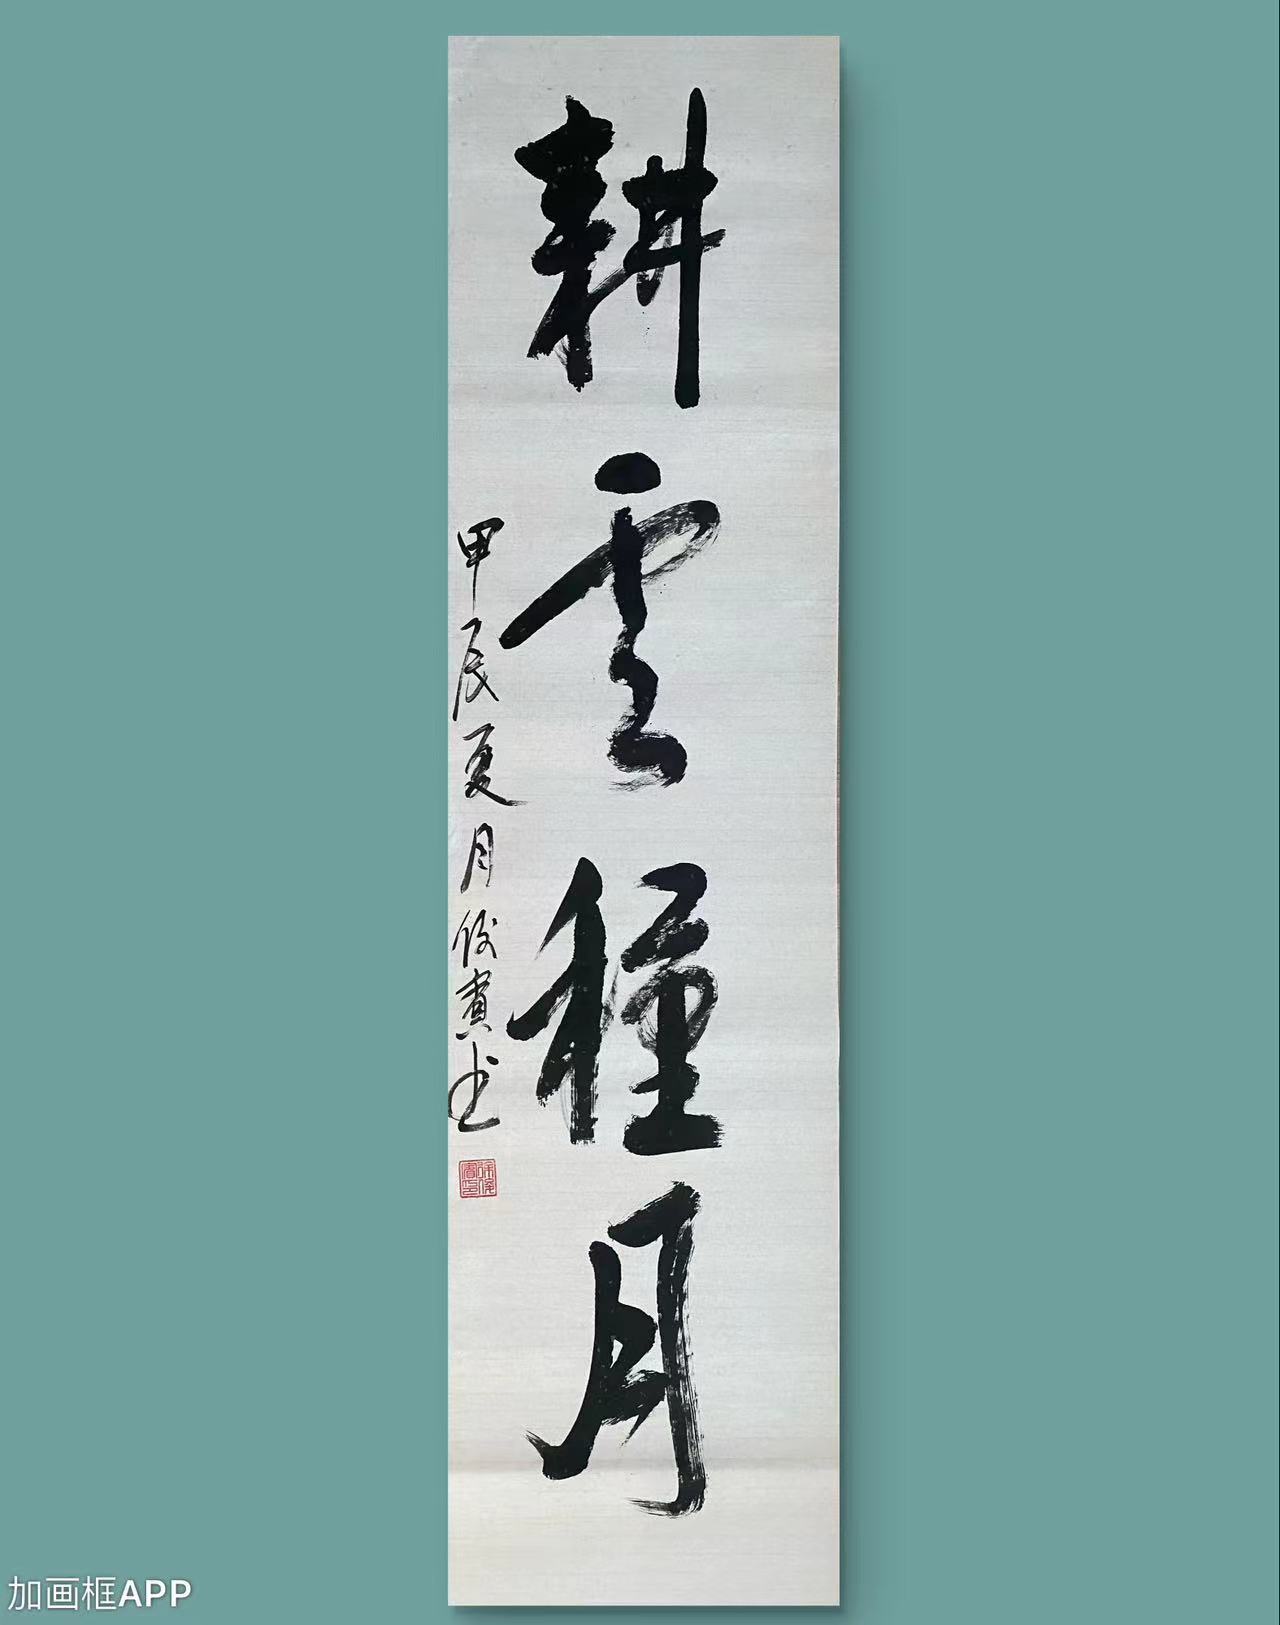 耕雲種月
甲辰夏月俊賓书
加画框APP